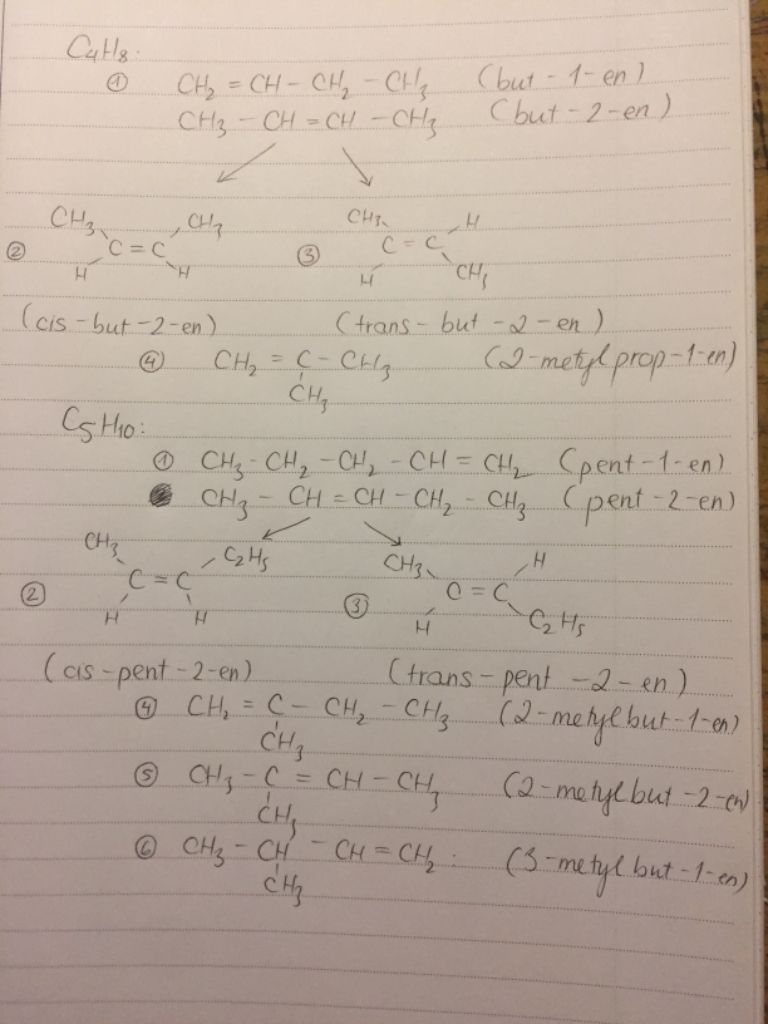 C4H8:
① CH2 = CH - CH2 - CH3 (but - 1 - en)
CH3 - CH = CH - CH3 (but - 2 - en)
CH3 CH3 CH3 H
② C = C ③ C = C
H H H CH3
(cis - but - 2 - en) (trans - but - 2 - en)
④ CH2 = C - CH3 (2-metylprop-1-en)
CH3
C5H10:
① CH3 - CH2 - CH2 - CH = CH2 (pent-1-en)
CH3 - CH = CH - CH2 - CH3 (pent-2-en)
CH3 C2H5 CH3 H
② C = C ③ C = C
H H H C2H5
(cis - pent - 2 - en) (trans - pent - 2 - en)
④ CH2 = C - CH2 - CH3 (2-metylbut-1-en)
CH3
⑤ CH3 - C = CH - CH3 (2-metylbut-2-en)
CH3
⑥ CH3 - CH - CH = CH2. (3-metylbut-1-en)
CH3